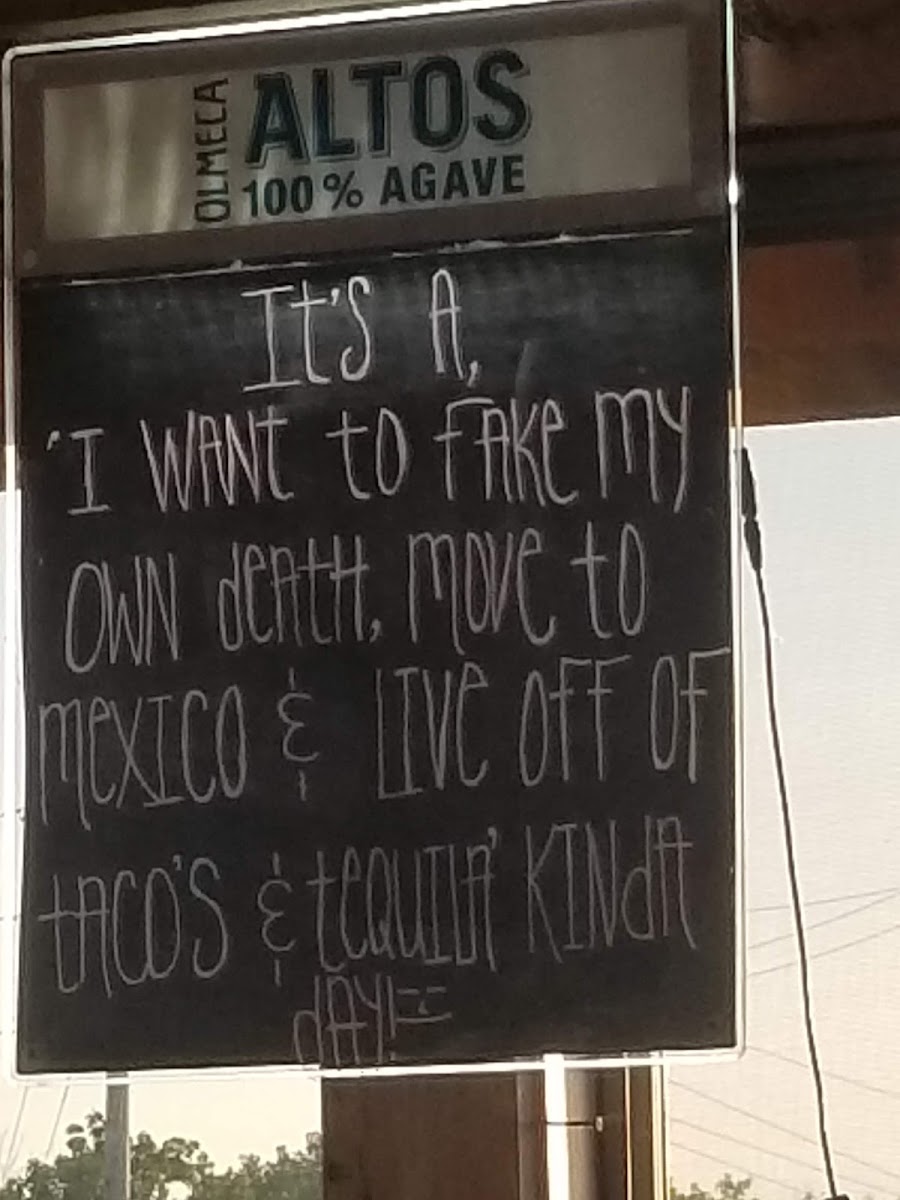 OLMECA
ALTOS
100% AGAVE
It's A,
'I WANt to FAKe My
OWN deAtH, MOVe to
MeXICO & LIVe OFF OF
tACO'S & teQUILA' KINdA
dAY!==